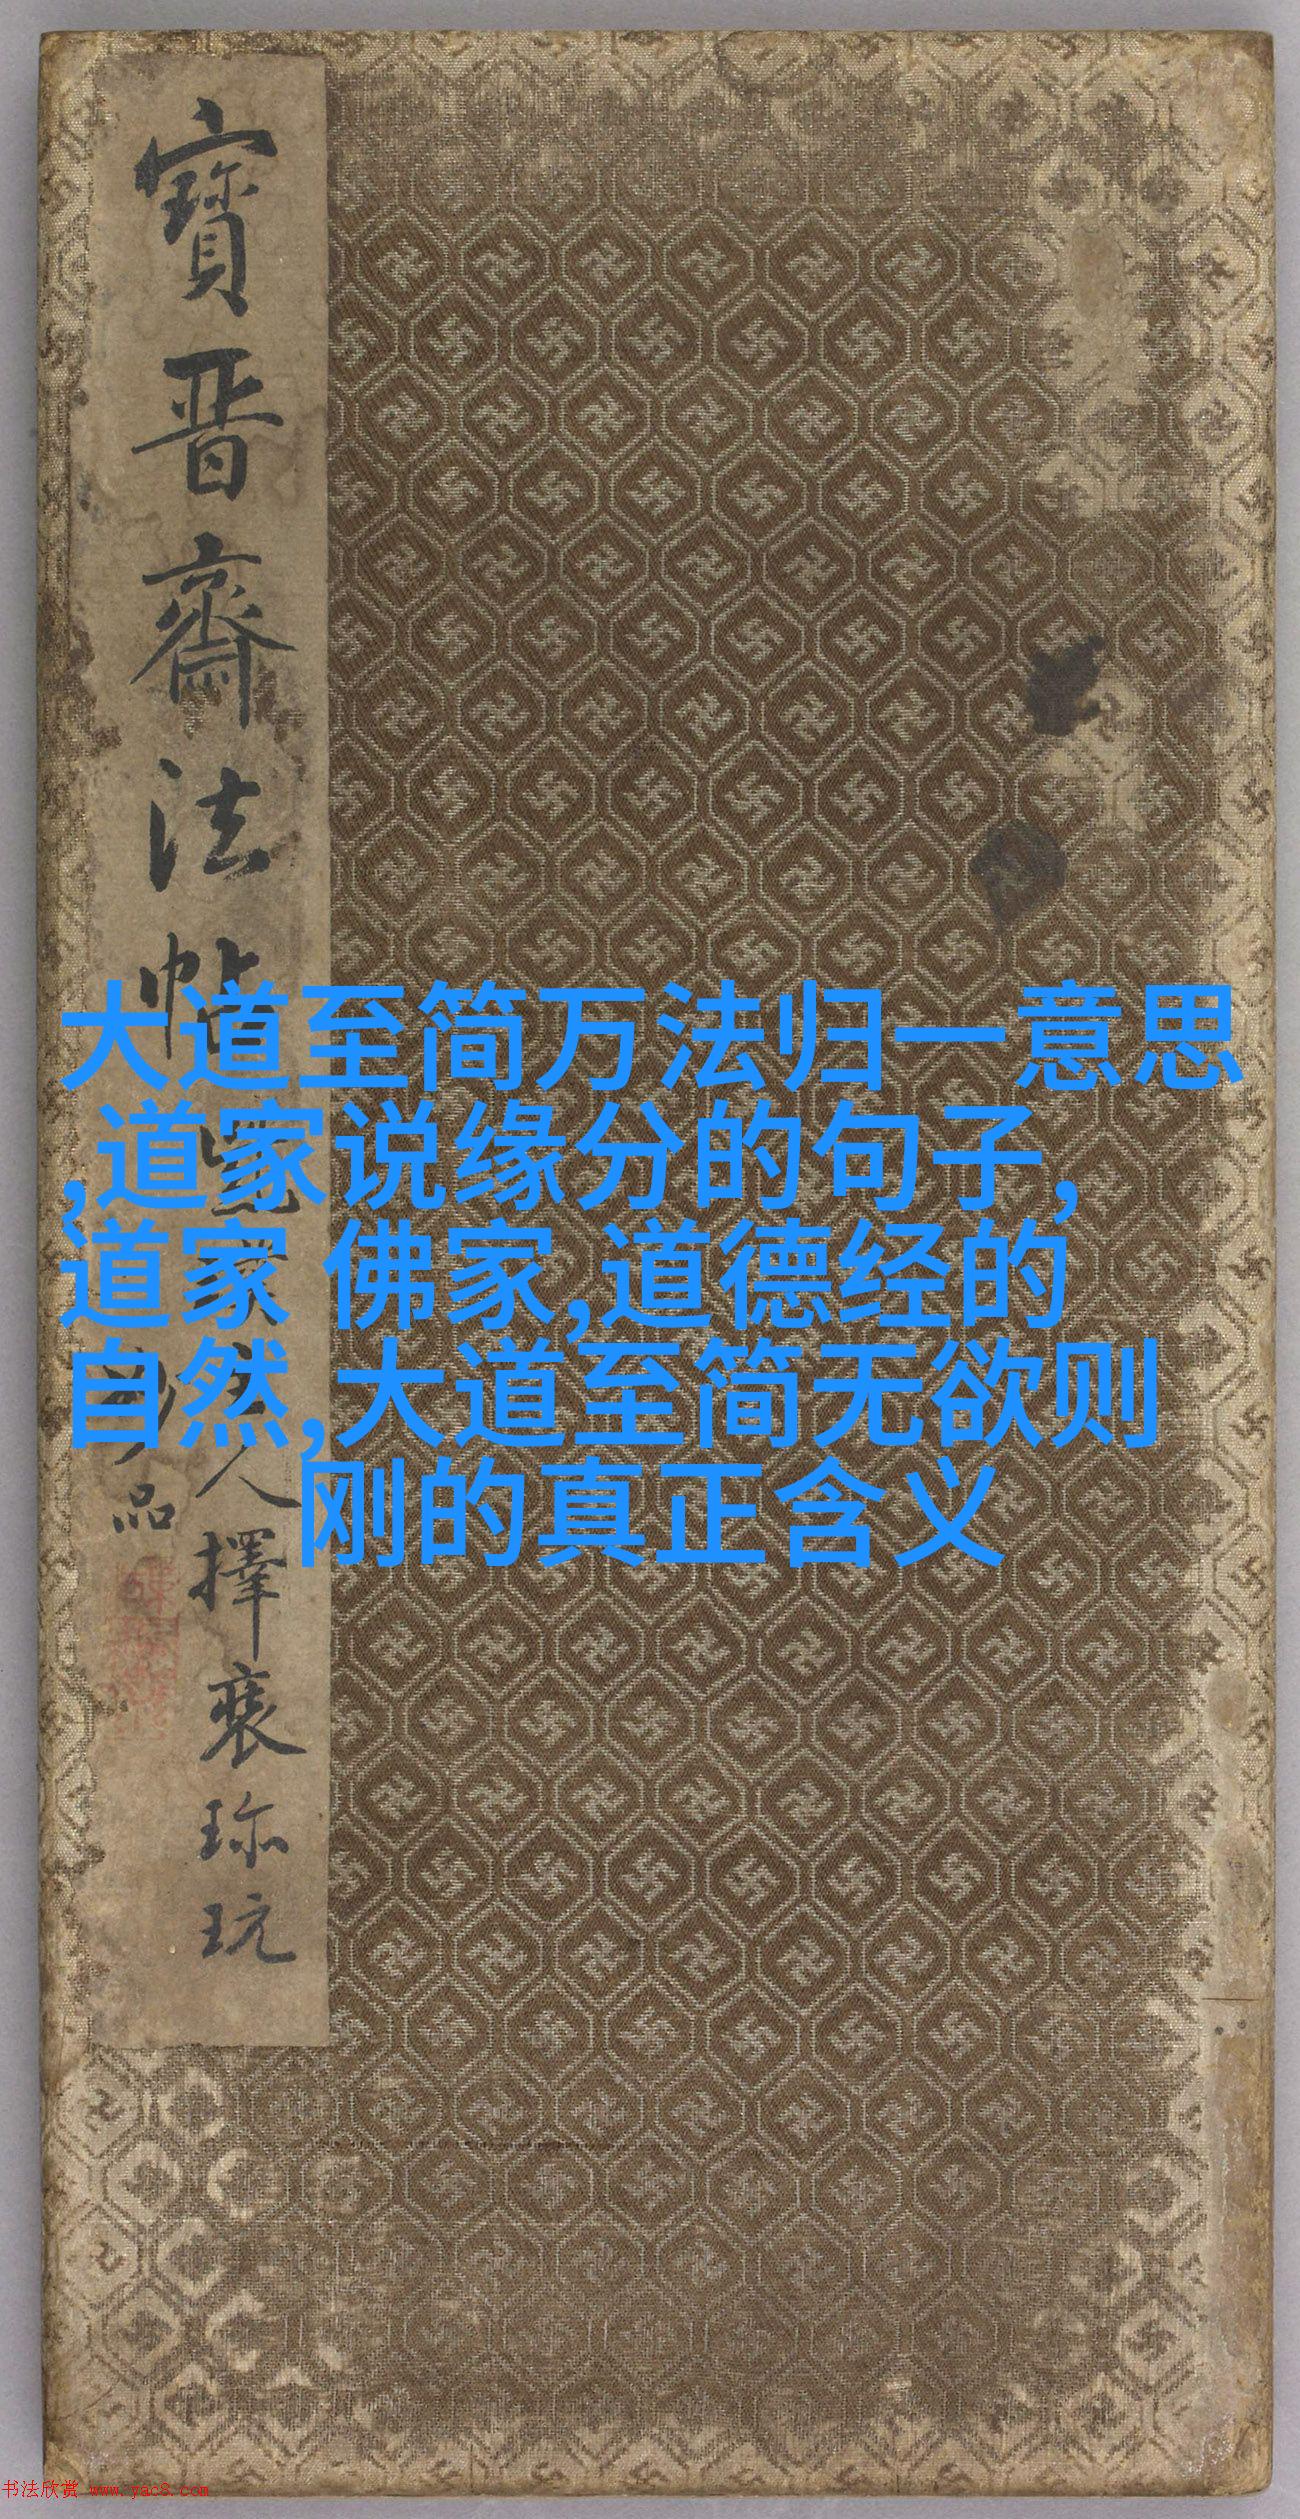 寶晉齋法帖
人擇裘珎玩
品
大道至简万法归一意思
,道家说缘分的句子,
道家 佛家,道德经的
自然,大道至简无欲则
刚的真正含义
书法欣赏 www.yac8.com